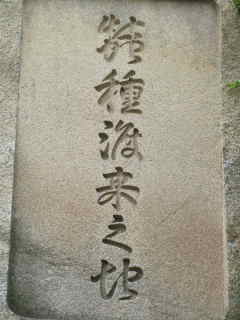 種渡来之地